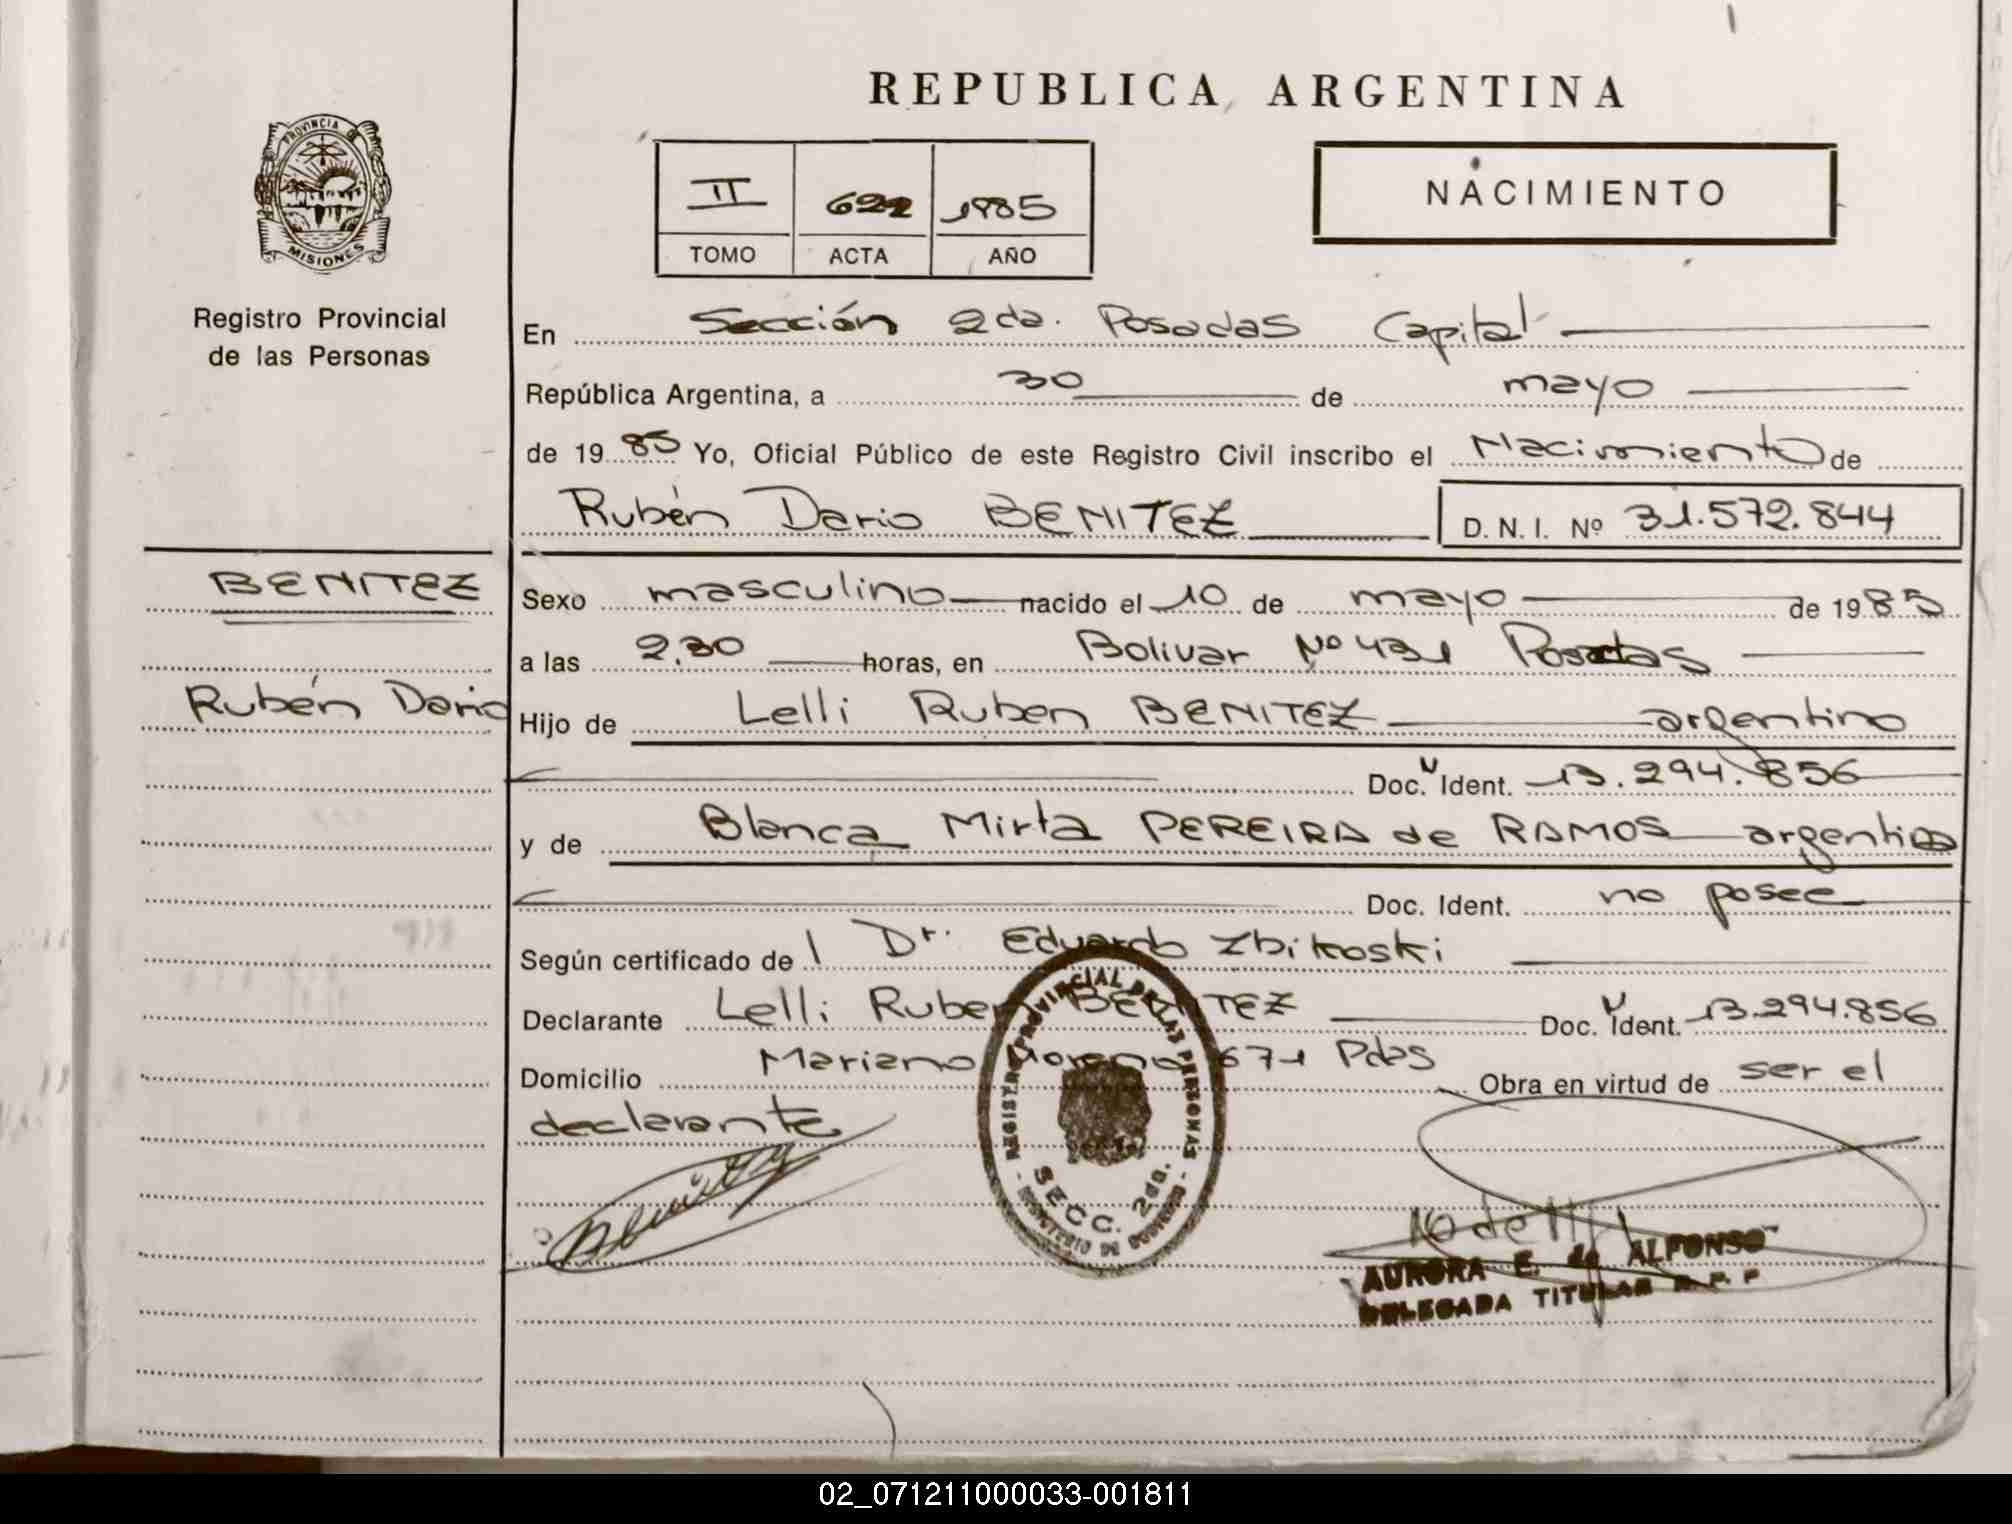 REPUBLICA ARGENTINA
PROVINCIA DE
MISIONES
Registro Provincial
de las Personas
II 622 1985
TOMO ACTA AÑO
NACIMIENTO
En Sección 2da. Posadas Capital
República Argentina, a 30 de mayo
de 1985 Yo, Oficial Público de este Registro Civil inscribo el Nacimiento de
Rubén Dario BENITEZ D. N. I. Nº 31.572.844
BENITEZ
Rubén Dario
Sexo masculino nacido el 10 de mayo de 1985
a las 2.30 horas, en Bolivar Nº 431 Posadas
Hijo de Lelli Ruben BENITEZ argentino
Doc. Ident. 13.294.856
y de Blanca Mirta PEREIRA de RAMOS argentina
Doc. Ident. no posee
Según certificado de l Dr. Eduardo Zbikoski
Declarante Lelli Ruben BENITEZ Doc. Ident. 13.294.856
Domicilio Mariano Moreno 671 Pdas Obra en virtud de ser el
declarante
Benitez
REGISTRO PROVINCIAL DE LAS PERSONAS
SECC. 2da.
MINISTERIO DE GOBIERNO
AURORA E. de ALFONSO
DELEGADA TITULAR R. P. P
02_071211000033-001811